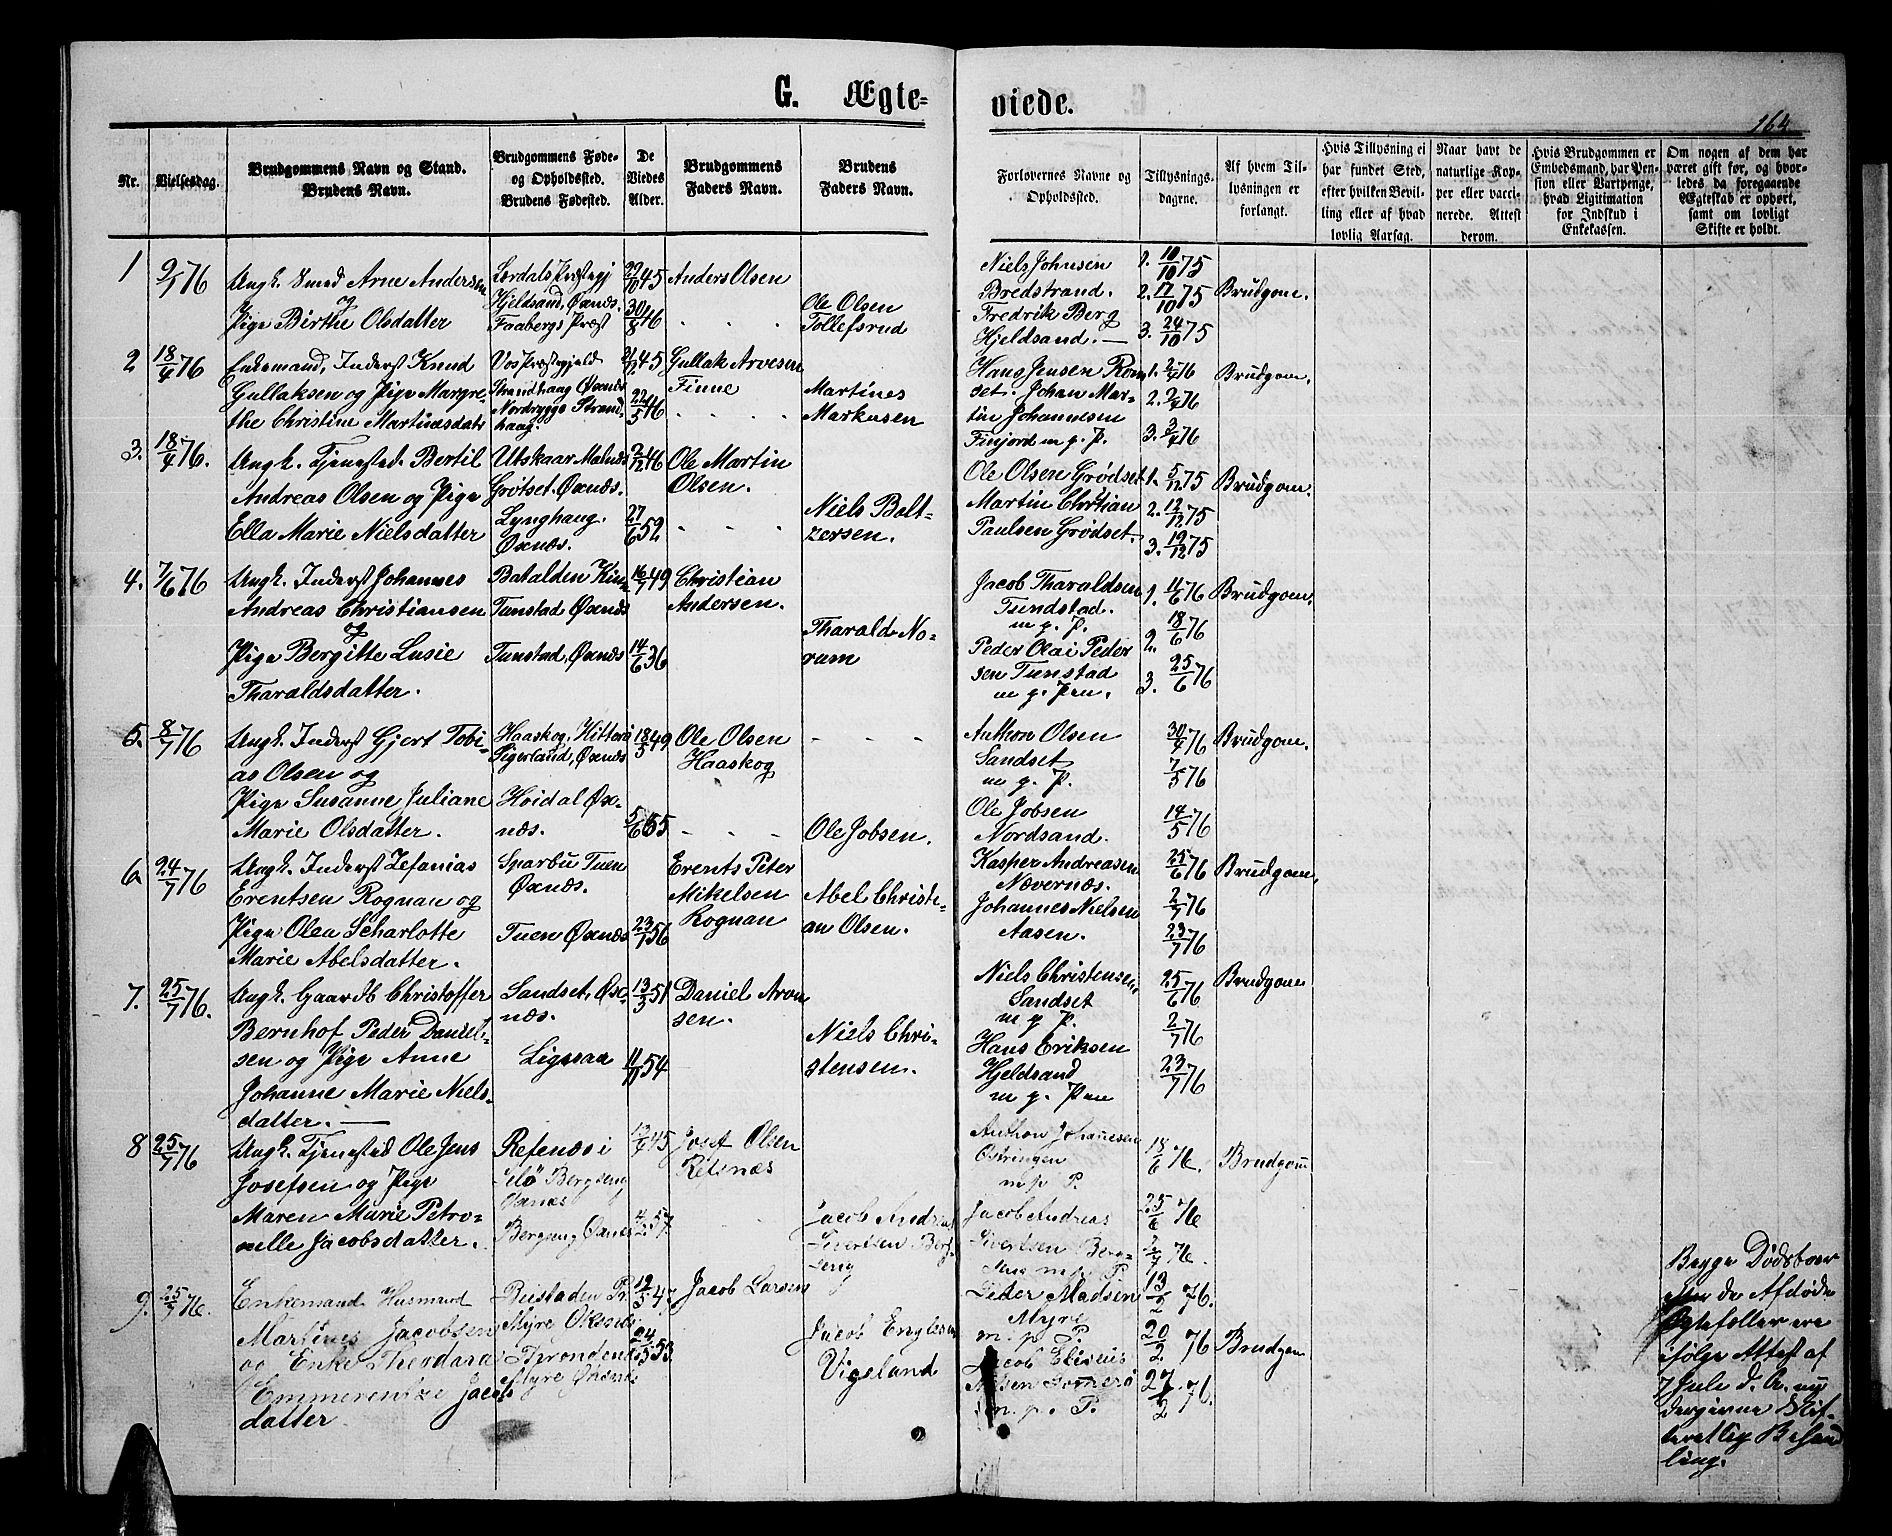 G. Ægte=
viede.
164
Nr.
Vielsesdag.
Brudgommens Navn og Stand.
Brudens Navn.
Brudgommens Føde-
og Opholdssted.
Brudens Fødested.
De
Viedes
Alder.
Brudgommens
Faders Navn.
Brudens
Faders Navn.
Forlovernes Navne og
Opholdssted.
Tillysnings-
dagene.
Af hvem Til-
lysningen er
forlangt.
Hvis Tillysning ei
har fundet Sted,
efter hvilken Bevil-
ling eller af hvad
lovlig Aarsag.
Naar havt de
naturlige Kop-
per eller vacci-
nerede. Attest
derom.
Hvis Brudgommen er
Embedsmand, har Pen-
sion eller Vartpenge,
hvad Ligitimation
for Indskud i
Enkekassen.
Om nogen af dem har
været gift før, og hvor-
ledes da foregaaende
Ægteskab er ophørt,
samt om lovligt
Skifte er holdt.
1
9/1 76
Ungk. Smed Arne Andersen
og
Pige Birthe Olsdatter
Hjeldsand, Øxnæs.
Faabergs Præst
45
30/8 46
Anders Olsen
Ole Olsen
Tollefsrud
Niels Johnsen
Bredstrand.
Fredrik Berg
Hjeldsand.
1. 10/10 75
2. 17/10 75
3. 24/10 75
Brudgom.
2
18/4 76
Enkemand, Inderst Knud
Gullaksen og Pige Margre-
the Christine Martinesdatr
Vos Præstegjeld
Strandhaag Øxnæs
Nordrygge Strand-
haag.
45
22/5 46
Gullak Arvesen
Finne
Martines
Markusen
Hans Jensen Rom-
set. Johan Mar-
tin Johannesen
Finjord m. p. P.
1. 2/4 76
2. 2/4 76
3. 3/4 76
Brudgom.
3.
18/4 76.
Ungk. Tjenestd. Bertil
Andreas Olsen og Pige
Ella Marie Nielsdatter
Utskaar Malnæs
Grøtset. Øxnæs.
Lynghaug.
Øxnæs.
2/12 46
27/6 52
Ole Martin
Olsen.
Niels Balt-
zersen.
Ole Olsen Grødset
Martin Christian
Paulsen Grødset.
1. 5/12 75
2. 12/12 75
3. 19/12 75
Brudgom.
4.
7/6 76
Ungk. Inderst Johannes
Andreas Christiansen
og
Pige Bergitte Lusie
Tharaldsdatter.
Batalden Kin-
Tunstad Øxnæs
Tunstad, Øxnæs
16/7 49
14/6 36
Christian
Andersen.
Tharald No-
rum
Jacob Tharaldsen
Tundstad.
m. p. P.
Peder Olai Peder
sen Tunstad
m. p. Pen.
1. 11/6 76
2. 18/6 76
3. 25/6 76
Brudgom.
5.
8/7 76
Ungk. Inderst Gjert Tobi-
as Olsen og
Pige Susanne Juliane
Marie Olsdatter.
Haaskog. Hitterø
Tigerland, Øxnæs
Høidal Øx-
næs.
18/3 49
5/6 55
Ole Olsen
Haaskog
Ole Jobsen.
Anthon Olsen
Sandset
m. p. P.
Ole Jobsen
Nordsand.
30/4 76
7/5 76
14/5 76
Brudgom.
6
24/7 76
Ungk. Inderst Zefanias
Erentsen Rognan og
Pige Olea Scharlotte
Marie Abelsdatter.
Sparbu Tuen
Øxnæs.
Tuen Øxnæs
23/7 56
Erents Peter
Mikelsen
Rognan
Abel Christi-
an Olsen.
Kasper Andreasen
Nævernæs.
Johannes Nielsen
Aasen.
25/6 76
2/7 76
23/7 76
Brudgom.
7.
25/7 76.
Ungk. Gaardb Christoffer
Bernhof Peder Daniel-
sen og Pige Anne
Johanne Marie Niels-
datter.
Sandset, Øx-
næs.
Ligesaa
13/3 51
11/11 54
Daniel Aron
sen.
Niels Chri-
stensen.
Niels Christensen,
Sandset
m p P.
Hans Eriksen
Hjeldsand
m p. Pen
25/6 76
2/7 76
23/7 76
Brudgom
8
25/7 76
Ungk. Tjenestd Ole Jens
Josefsen og Pige
Maren Marie Petro-
nelle Jacobsdatter.
Refsnæs i
Øxnæs
Øxnæs
45
57.
Josef Olsen
Refsnæs
Jacob Andreas
Sivertsen Berg-
seng
Anthon Johannesen
Østringen
m p P.
Jacob Andreas
Sivertsen Berg-
seng m. p. P.
18/6 76.
25/6 76
2/7 76.
Brudgom
9.
25/7 76.
Enkemand Husmand
Martines Jacobsen
og Enke Theodora
Emmerentze Jacobs
datter
Myre Øksnæs
Myre Øksnæs
12/5 47.
24/5 53
Jacob Larsen
Jacob Englesen
Vigeland
Peder Madsen
Myre
m. p. P.
Jacob Elisius
m. p. P.
13/2 76.
20/2 76
27/2 76.
Brudgom
Begge Dødsboer
efter de Afdøde
Ægtefæller ere
ifølge Attest af
7 Juli d. A. un
dergivne Skif-
teretlig Behand
ling.